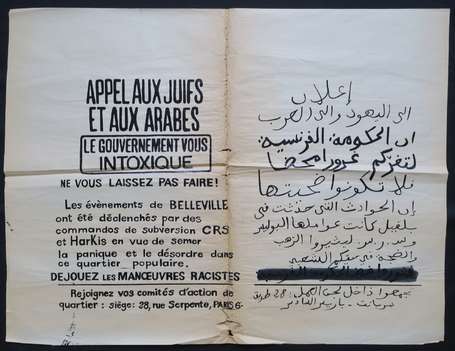 APPEL AUX JUIFS
ET AUX ARABES
LE GOUVERNEMENT VOUS
INTOXIQUE
NE VOUS LAISSEZ PAS FAIRE!
Les évènements de BELLEVILLE
ont été déclenchés par des
commandos de subversion CRS
et HarKis en vue de semer
la panique et le désordre dans
ce quartier populaire.
DEJOUEZ LES MANŒUVRES RACISTES
Rejoignez vos comités d'action de
quartier : siège: 28, rue Serpente, PARIS 6-
إعلان
الى اليهود والى العرب
ان الحكومة الفرنسية
تغركم غرورا محضا
فلا تكونوا ضحيتها
إن الحوادث التي حدثت في
بلفيل كانت عواملها البوليس